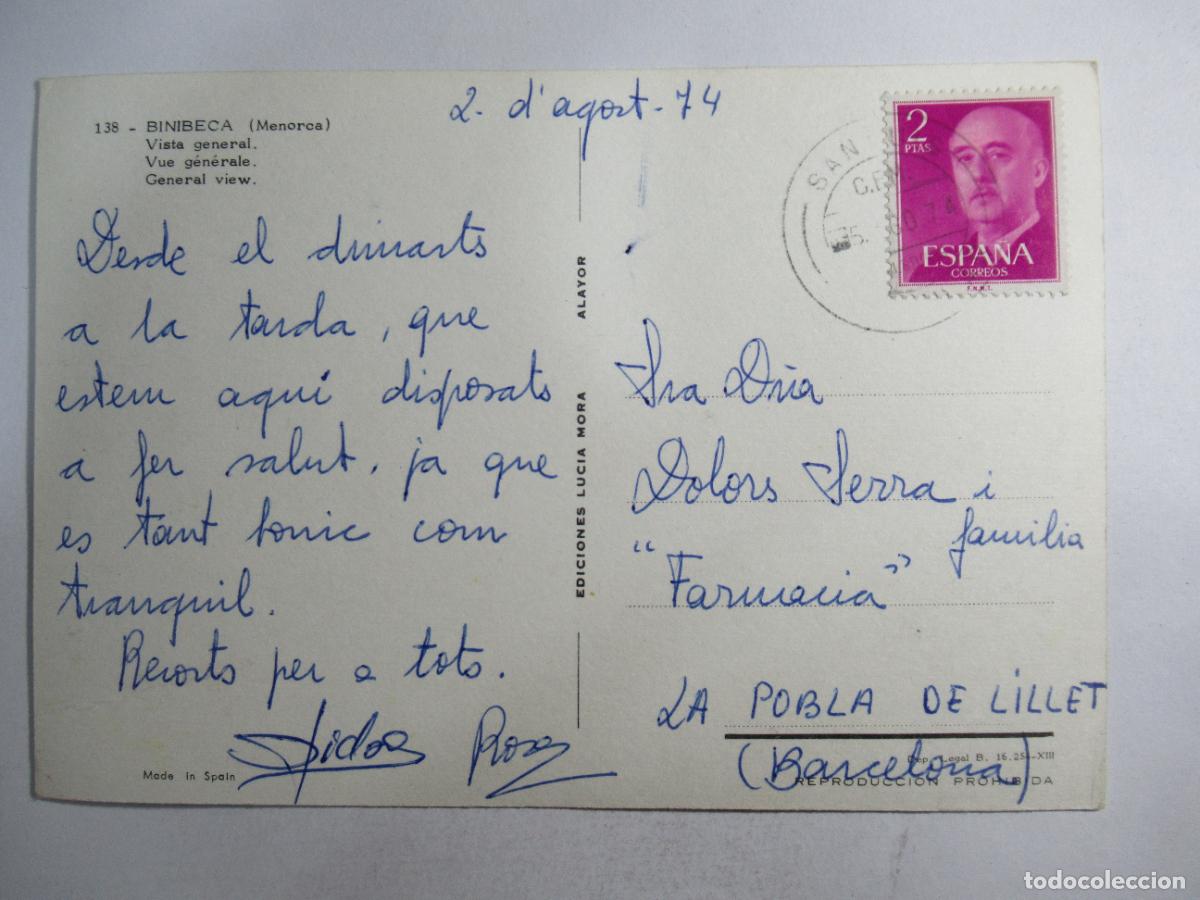 2 - d'agost - 74
138 - BINIBECA (Menorca)
Vista general.
Vue générale.
General view.
Desde el dimarts
a la tarda, que
estem aquí disposats
a fer salut, ja que
es tant bonic com
tranquil.
Records per a tots.
Rosa
Made in Spain
EDICIONES LUCIA MORA ALAYOR
SAN
2
PTAS
ESPAÑA
CORREOS
F.N.M.T.
Sra Dña
Dolors Serra i
familia
"Farmacia"
LA POBLA DE LILLET
(Barcelona)
Dep. Legal B. 16.254-XIII
REPRODUCCION PROHIBIDA
todocoleccion